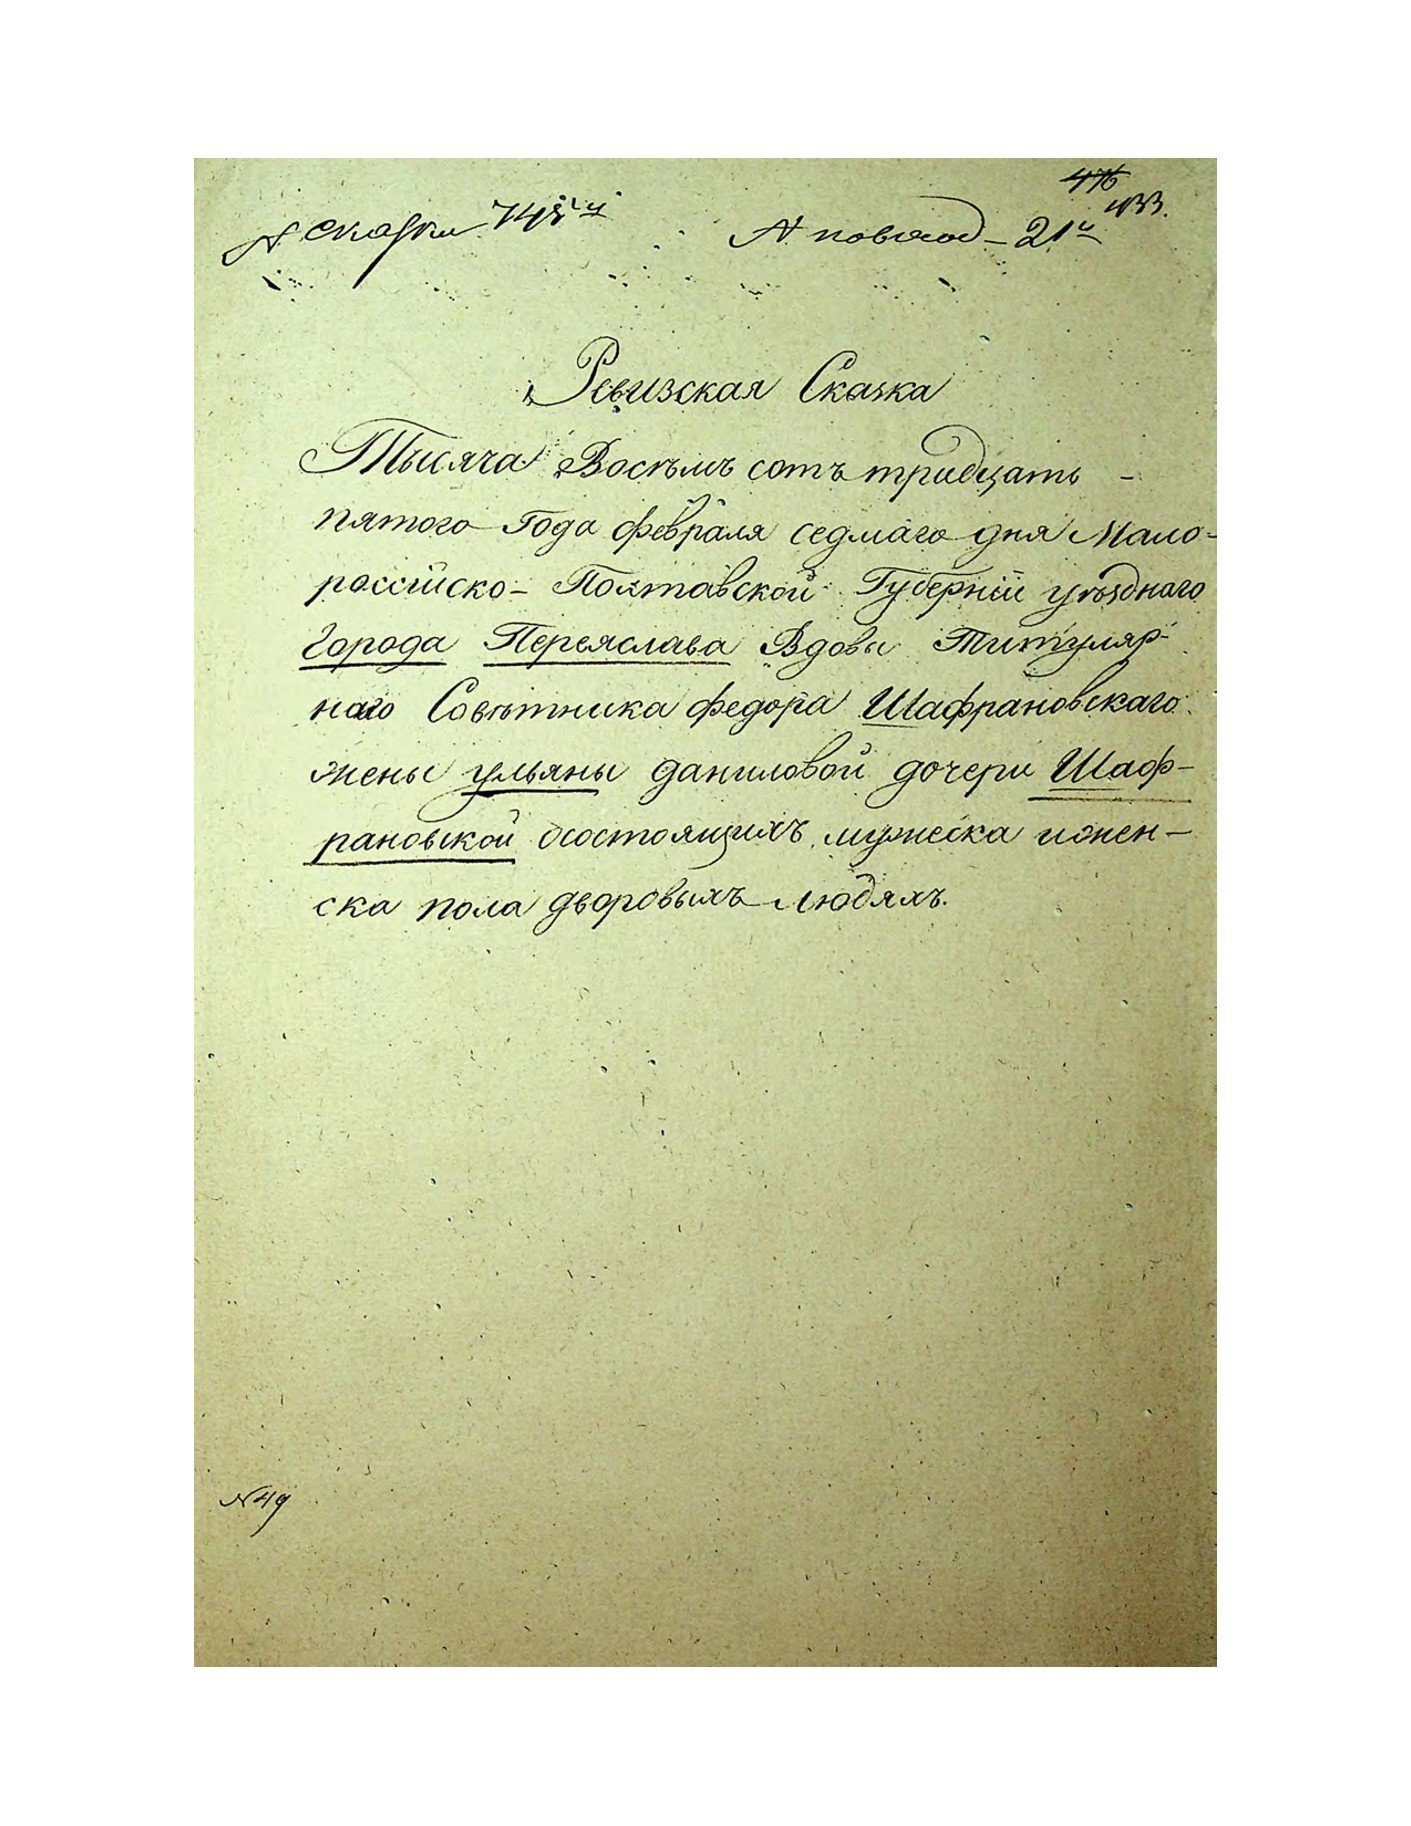 476
433.
№ сказки 743й № повсюод - 21й
Ревизская Сказка
Тысяча Восѣмъ сотъ тридцать -
пятого Года февраля седмаго дня Мало-
россійско- Полтавской Губерніи уѣзднаго
Города Переяслава Вдовы Титуляр-
наго Совѣтника федора Шафрановскаго
жены ульяны даниловой дочери Шаф-
рановской осостоящихъ мужеска ижен-
ска пола дворовыхъ людяхъ.
№ 49